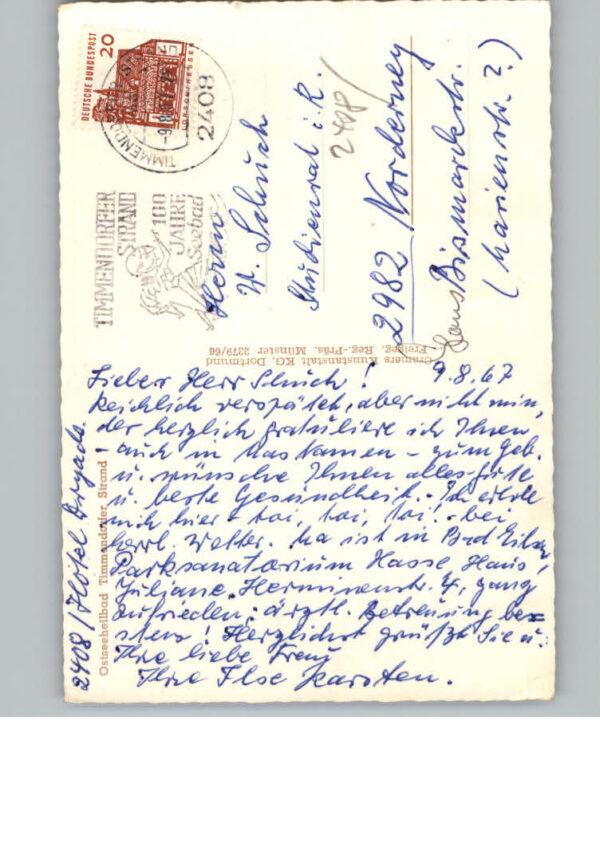 DEUTSCHE BUNDESPOST
20
TIMMENDORFER STRAND
-9.8.67
2408
TIMMENDORFER
STRAND
100
JAHRE
Seebad
Herrn
W. Schuch
Studienrat i. R.
2408
2982 Norderney
Haus Bismarckstr.
(Marienstr. ?)
Cramers Kunstanstalt KG, Dortmund
Freigeg. Reg.-Präs. Münster 2379/66
Ostseeheilbad Timmendorfer Strand
2408 / Hotel Dryade
9.8.67
Lieber Herr Schuch!
Reichlich verspätet, aber nicht min,
der herzlich gratuliere ich Ihnen
- auch in Mas Namen - zum Geb.
u. wünsche Ihnen alles Gute
u. beste Gesundheit. Ich erhole
mich hier - toi, toi, toi! - bei
herrl. Wetter. Ma ist in Bad Eilsen,
Parksanatorium Hasse, Haus
Juliane, Herminenstr. 4, ganz
zufrieden; ärztl. Betreuung be=
stens! Herzlichst grüßt Sie u.
Ihre liebe Frau
Ihre Ilse Karsten.